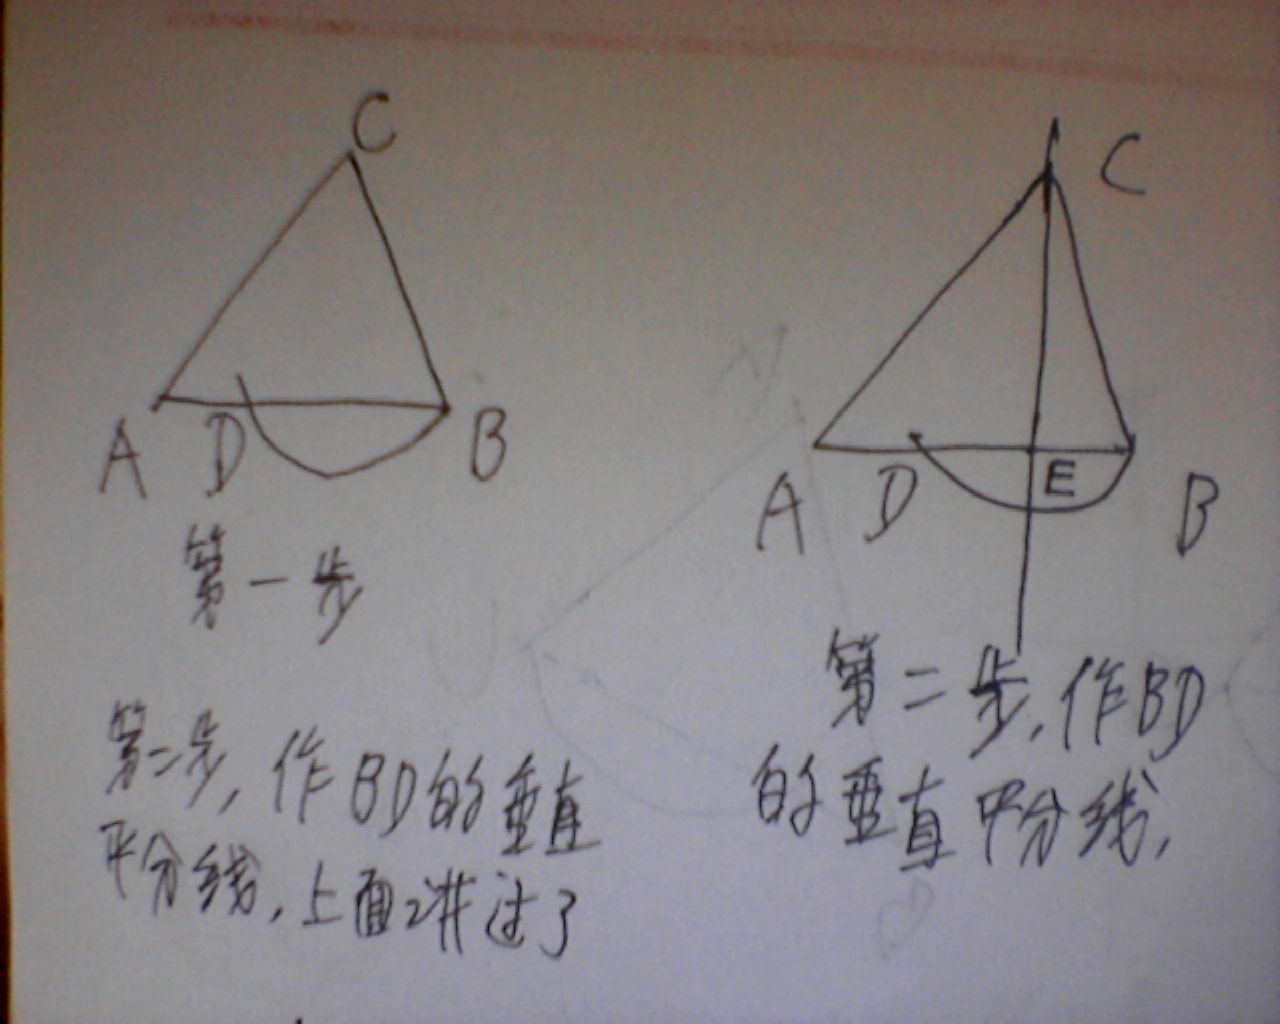 C
A D B
第一步
第二步,作BD的垂直
平分线,上面讲过了
C
A D E B
第二步,作BD
的垂直平分线,